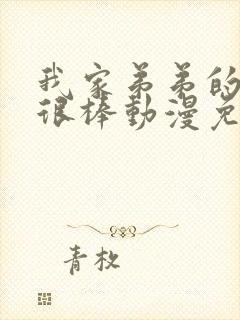 我家弟弟的
很棒動漫免
青枚